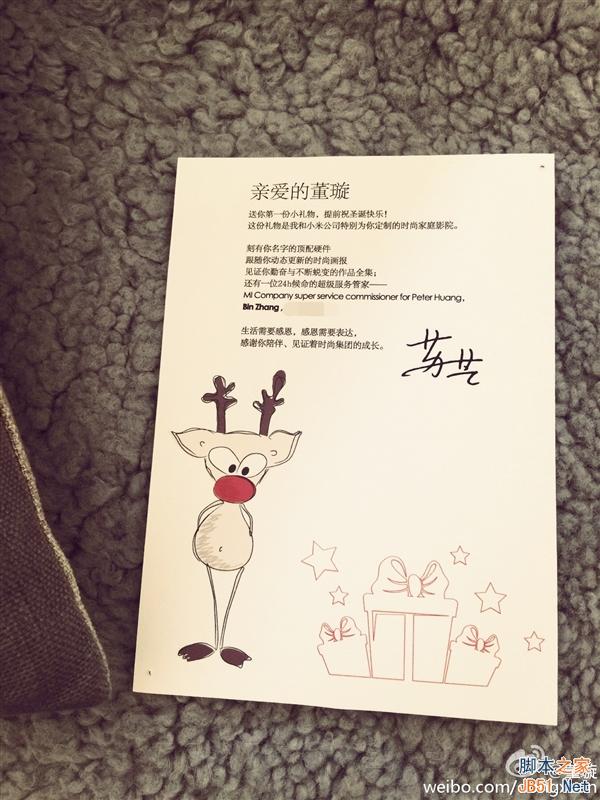 亲爱的董璇
送你第一份小礼物，提前祝圣诞快乐！
这份礼物是我和小米公司特别为你定制的时尚家庭影院。
刻有你名字的顶配硬件
跟随你动态更新的时尚画报
见证你勤奋与不断蜕变的作品全集；
还有一位24h候命的超级服务管家——
MI Company super service commissioner for Peter Huang,
Bin Zhang,
生活需要感恩，感恩需要表达，
感谢你陪伴、见证着时尚集团的成长。
苏芒
脚本之家
JB51.Net